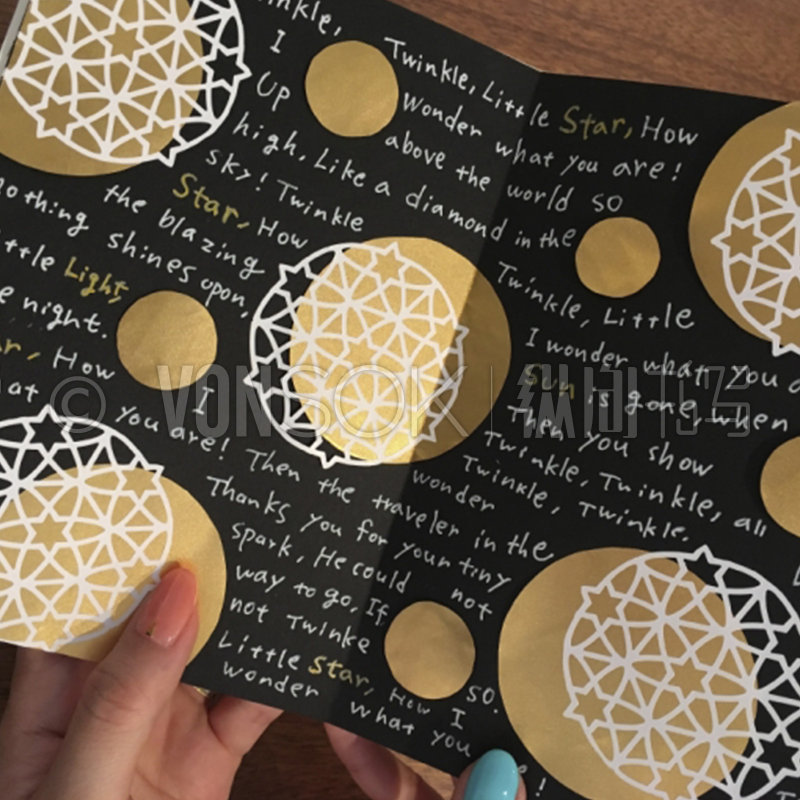 inkle,
Twinkle, Little Star, How
I
Wonder what you are!
Up
above the world so
high, Like a diamond in the
sky! Twinkle
Twinkle, Little
Star, How
I wonder what you a
the blazing
Sun is gone, when
nothing shines upon,
Then you show
ttle Light,
Twinkle, Twinkle, all
e night.
Twinkle, Twinkle.
ar, How
I
wonder
at you are! Then the traveler in the
Thanks you for your tiny
spark, He could not
way to go, If
not Twinke
so.
Little Star, How I
wonder what you
!
© VONSOK | 纵向时尚